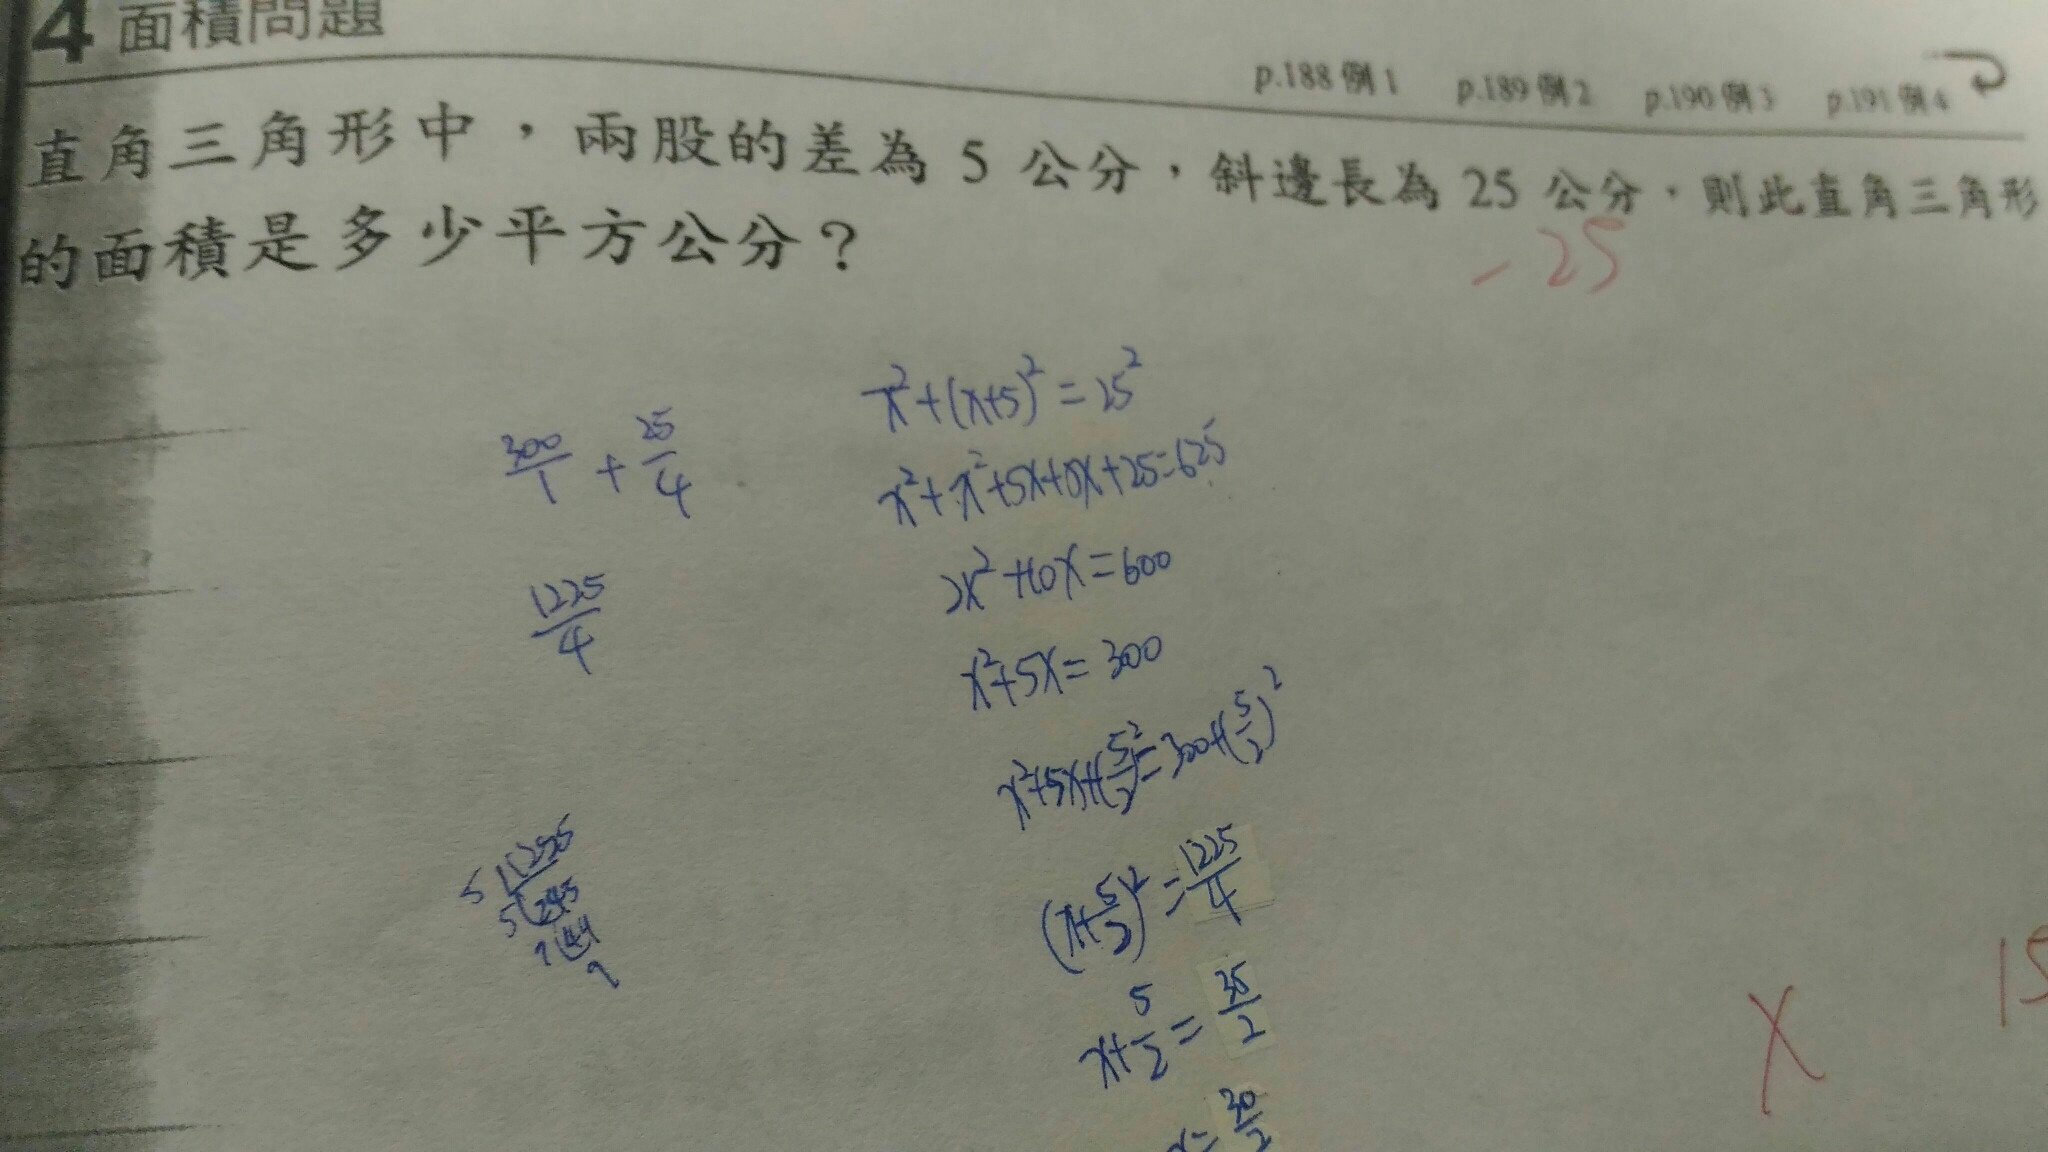 4 面積問題
p.188 例 1 p.189 例 2 p.190 例 3 p.191 例 4
直角三角形中，兩股的差為 5 公分，斜邊長為 25 公分，則此直角三角形
的面積是多少平方公分？
-25
x²+(x+5)²=25²
x²+x²+5x+5x+25=625
2x²+10x=600
x²+5x=300
x²+5x+(5/2)²=300+(5/2)²
(x+5/2)²=1225/4
x+5/2=35/2
x=30/2
300/1+25/4
1225/4
5 1225
5 245
7 49
7
X
15